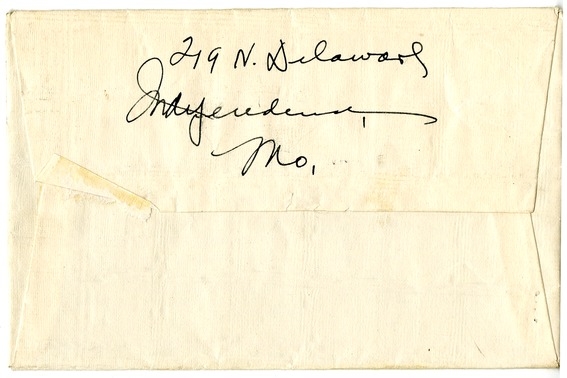 219 N. Delaware
Independence,
Mo.